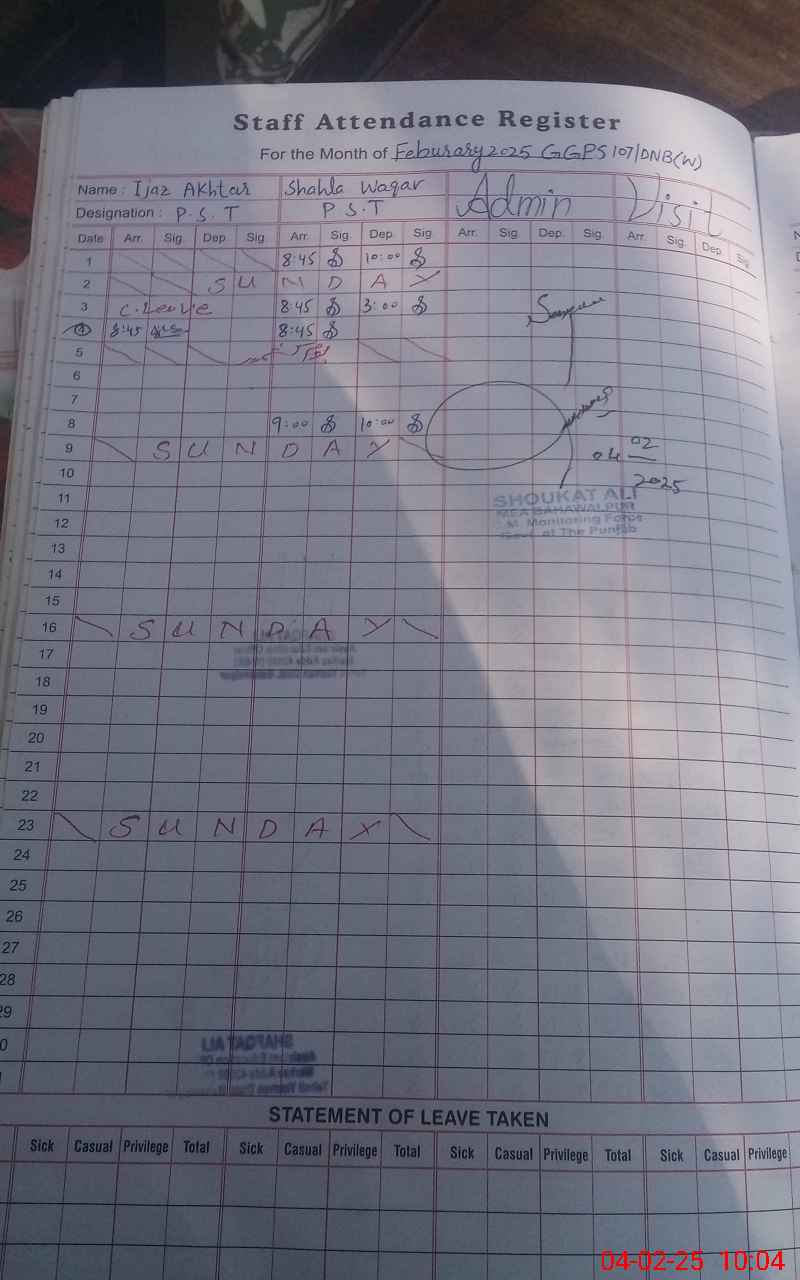 Staff Attendance Register
For the Month of Feburary 2025 GGPS 107/DNB(W)
Name : Ijaz Akhtar Shahla Waqar Admin Visit
Designation : P.S.T P.S.T
Date Arr. Sig. Dep. Sig. Arr. Sig. Dep. Sig. Arr. Sig. Dep. Sig. Arr. Sig. Dep. Sig.
1 8:45 10:00
2 SUNDAY
3 C.Leave 8:45 3:00
4 8:45 8:45
5
6
7
8 9:00 10:00
9 SUNDAY
04 02
2025
10
11
SHOUKAT ALI
MEA BAHAWALPUR
12
M. Monitoring Force
Govt. of The Punjab
13
14
15
16 SUNDAY
17
18
19
20
21
22
23 SUNDAY
24
25
26
27
28
29
0
STATEMENT OF LEAVE TAKEN
Sick Casual Privilege Total Sick Casual Privilege Total Sick Casual Privilege Total Sick Casual Privilege
04-02-25 10:04